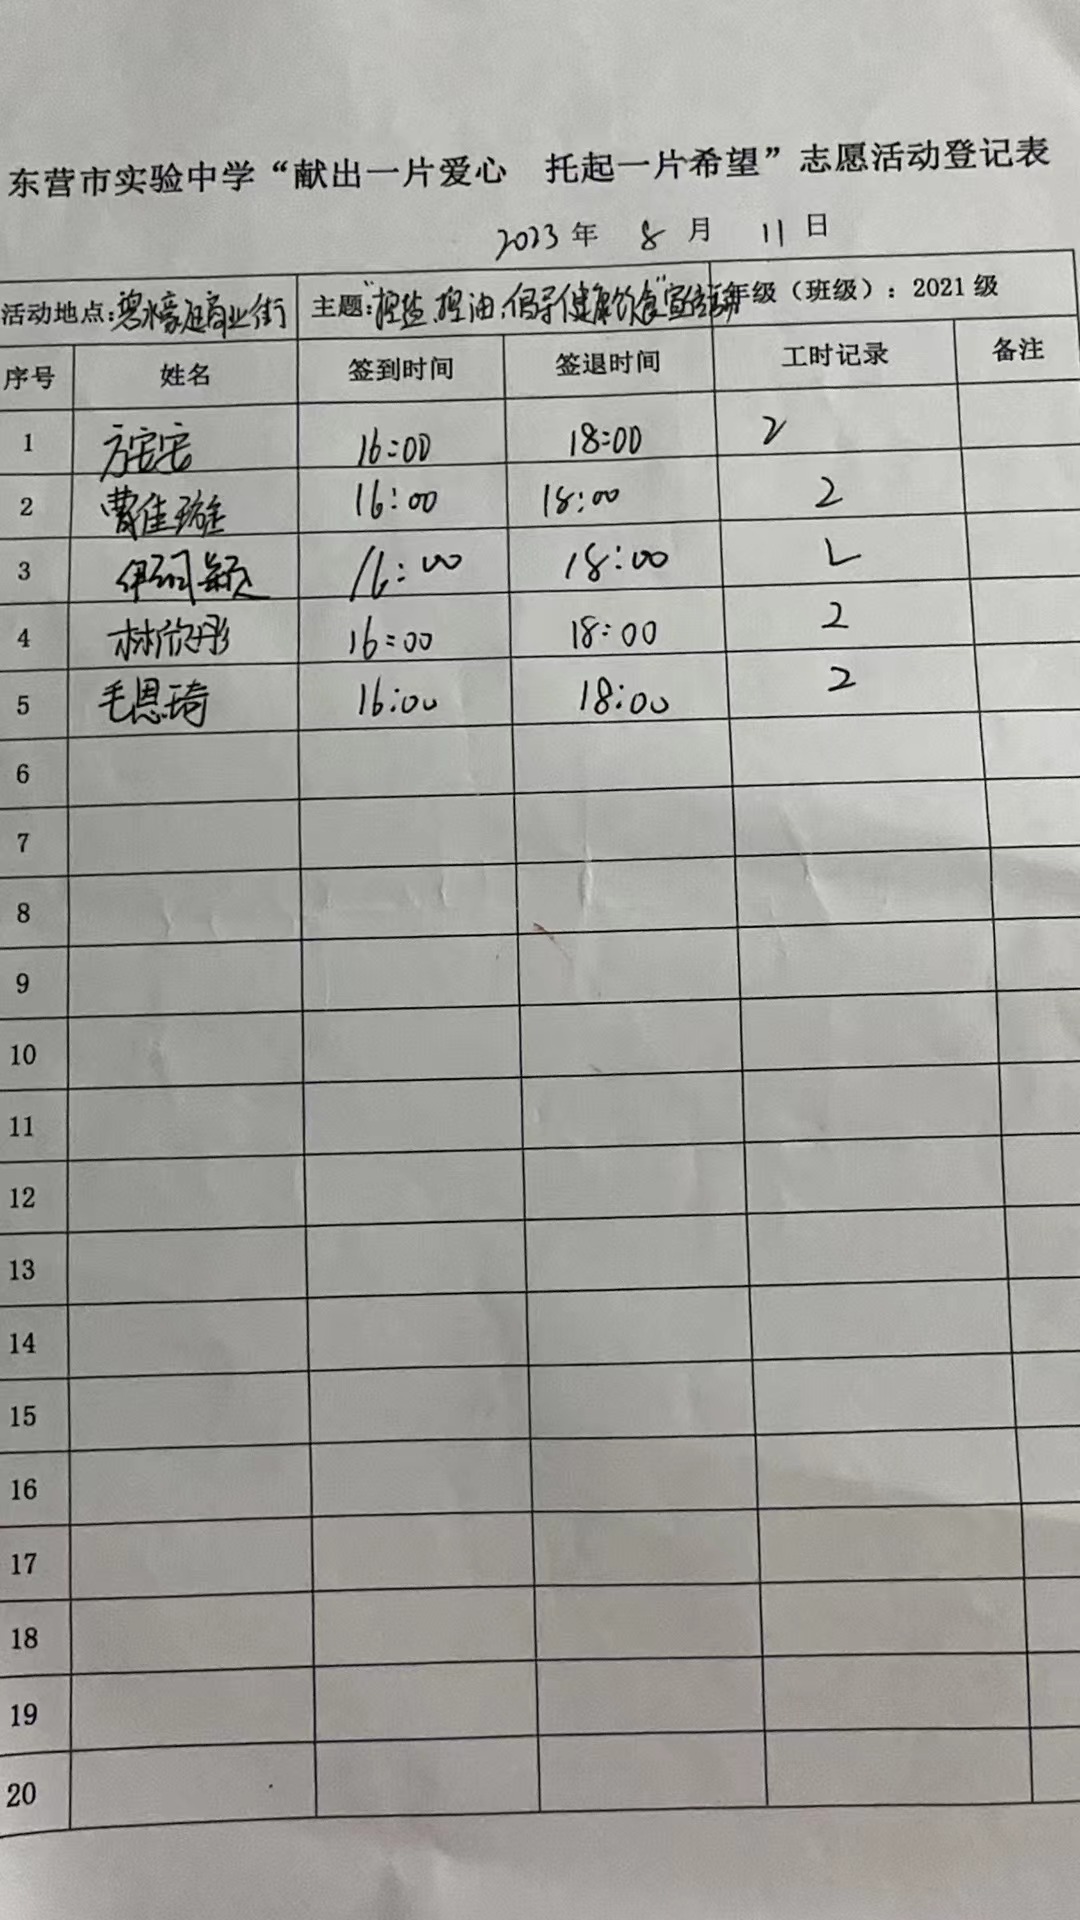 东营市实验中学“献出一片爱心 托起一片希望”志愿活动登记表
2023 年 8 月 11 日
活动地点:碧水豪庭商业街 主题:“控盐、控油、倡导健康饮食”宣传活动 年级（班级）: 2021 级
序号 姓名 签到时间 签退时间 工时记录 备注
1 方安安 16:00 18:00 2
2 曹佳璇 16:00 18:00 2
3 伊 颖 16:00 18:00 2
4 林欣彤 16:00 18:00 2
5 毛恩琦 16:00 18:00 2
6
7
8
9
10
11
12
13
14
15
16
17
18
19
20